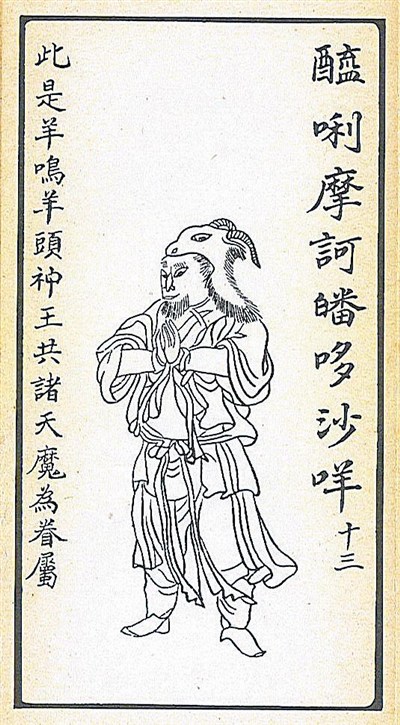 醯唎摩訶皤哆沙咩 十三
此是羊鳴羊頭神王共諸天魔為眷屬